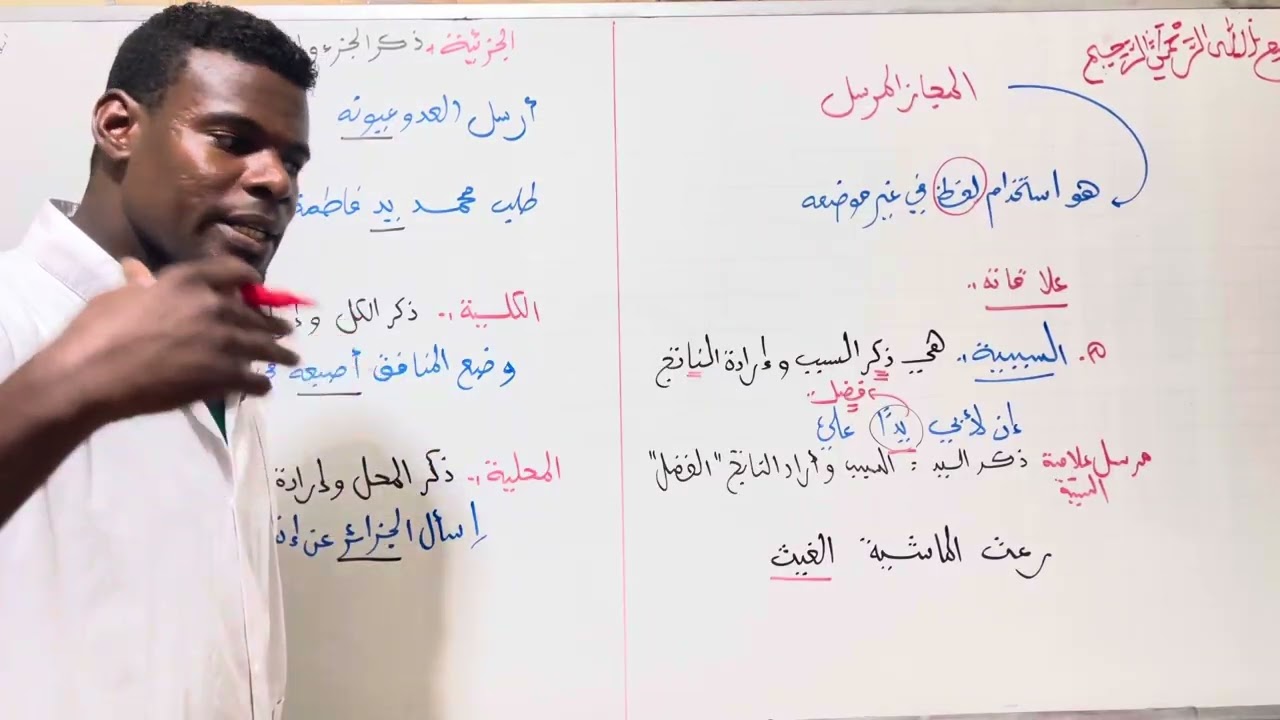 الله الرحمن الرحيم
المجاز المرسل
هو استخدام لفظ في غير موضعه
علاقاته:
السببية: هي ذكر السبب وإرادة الناتج
فضل
إن لأبي يدًا علي
مرسل علاقة ذكر اليد = السبب وأراد الناتج "الفضل"
السببية
رعت الماشية الغيث
الجزئية: ذكر الجزء وإ
أرسل العدو عيونه
طلب محمد يد فاطمة
الكلية: ذكر الكل وإ
وضع المنافق أصبعه
المحلية: ذكر المحل وإرادة
إسأل الجزائر عن